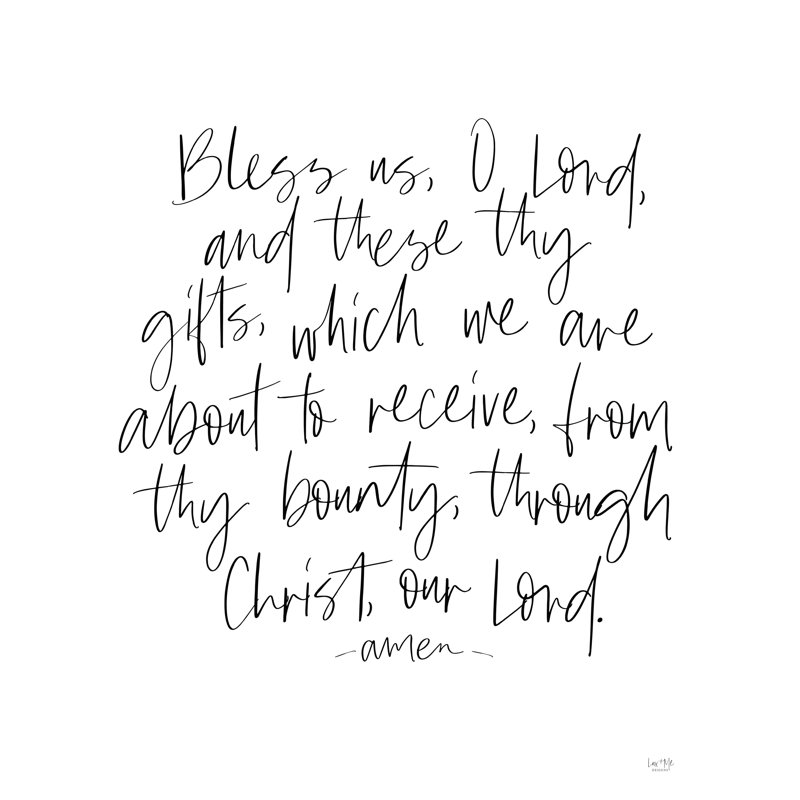 Bless us, O Lord,
and these thy
gifts, which we are
about to receive, from
thy bounty, through
Christ, our Lord.
-amen-
Lux + Me
DESIGNS